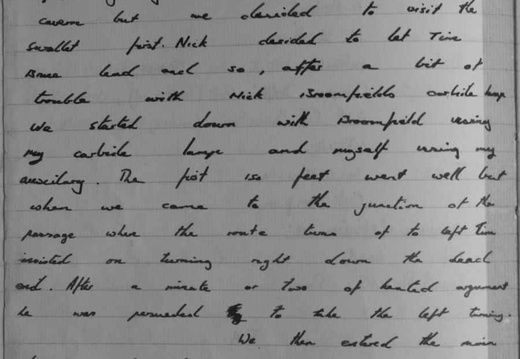 cavern but we decided to visit the
swallet first. Nick decided to let Tim
lead and so, after a bit of
trouble with Nick Broomfields carbide lamp
we started down with Broomfield using
my carbide lamp and myself using my
auxiliary. The first 150 feet went well but
when we came to the junction of the
passage where the route turns of to left Tim
insisted on turning right down the dead
end. After a minute or two of heated argument
he was persuaded to take the left turning.
We then entered the main